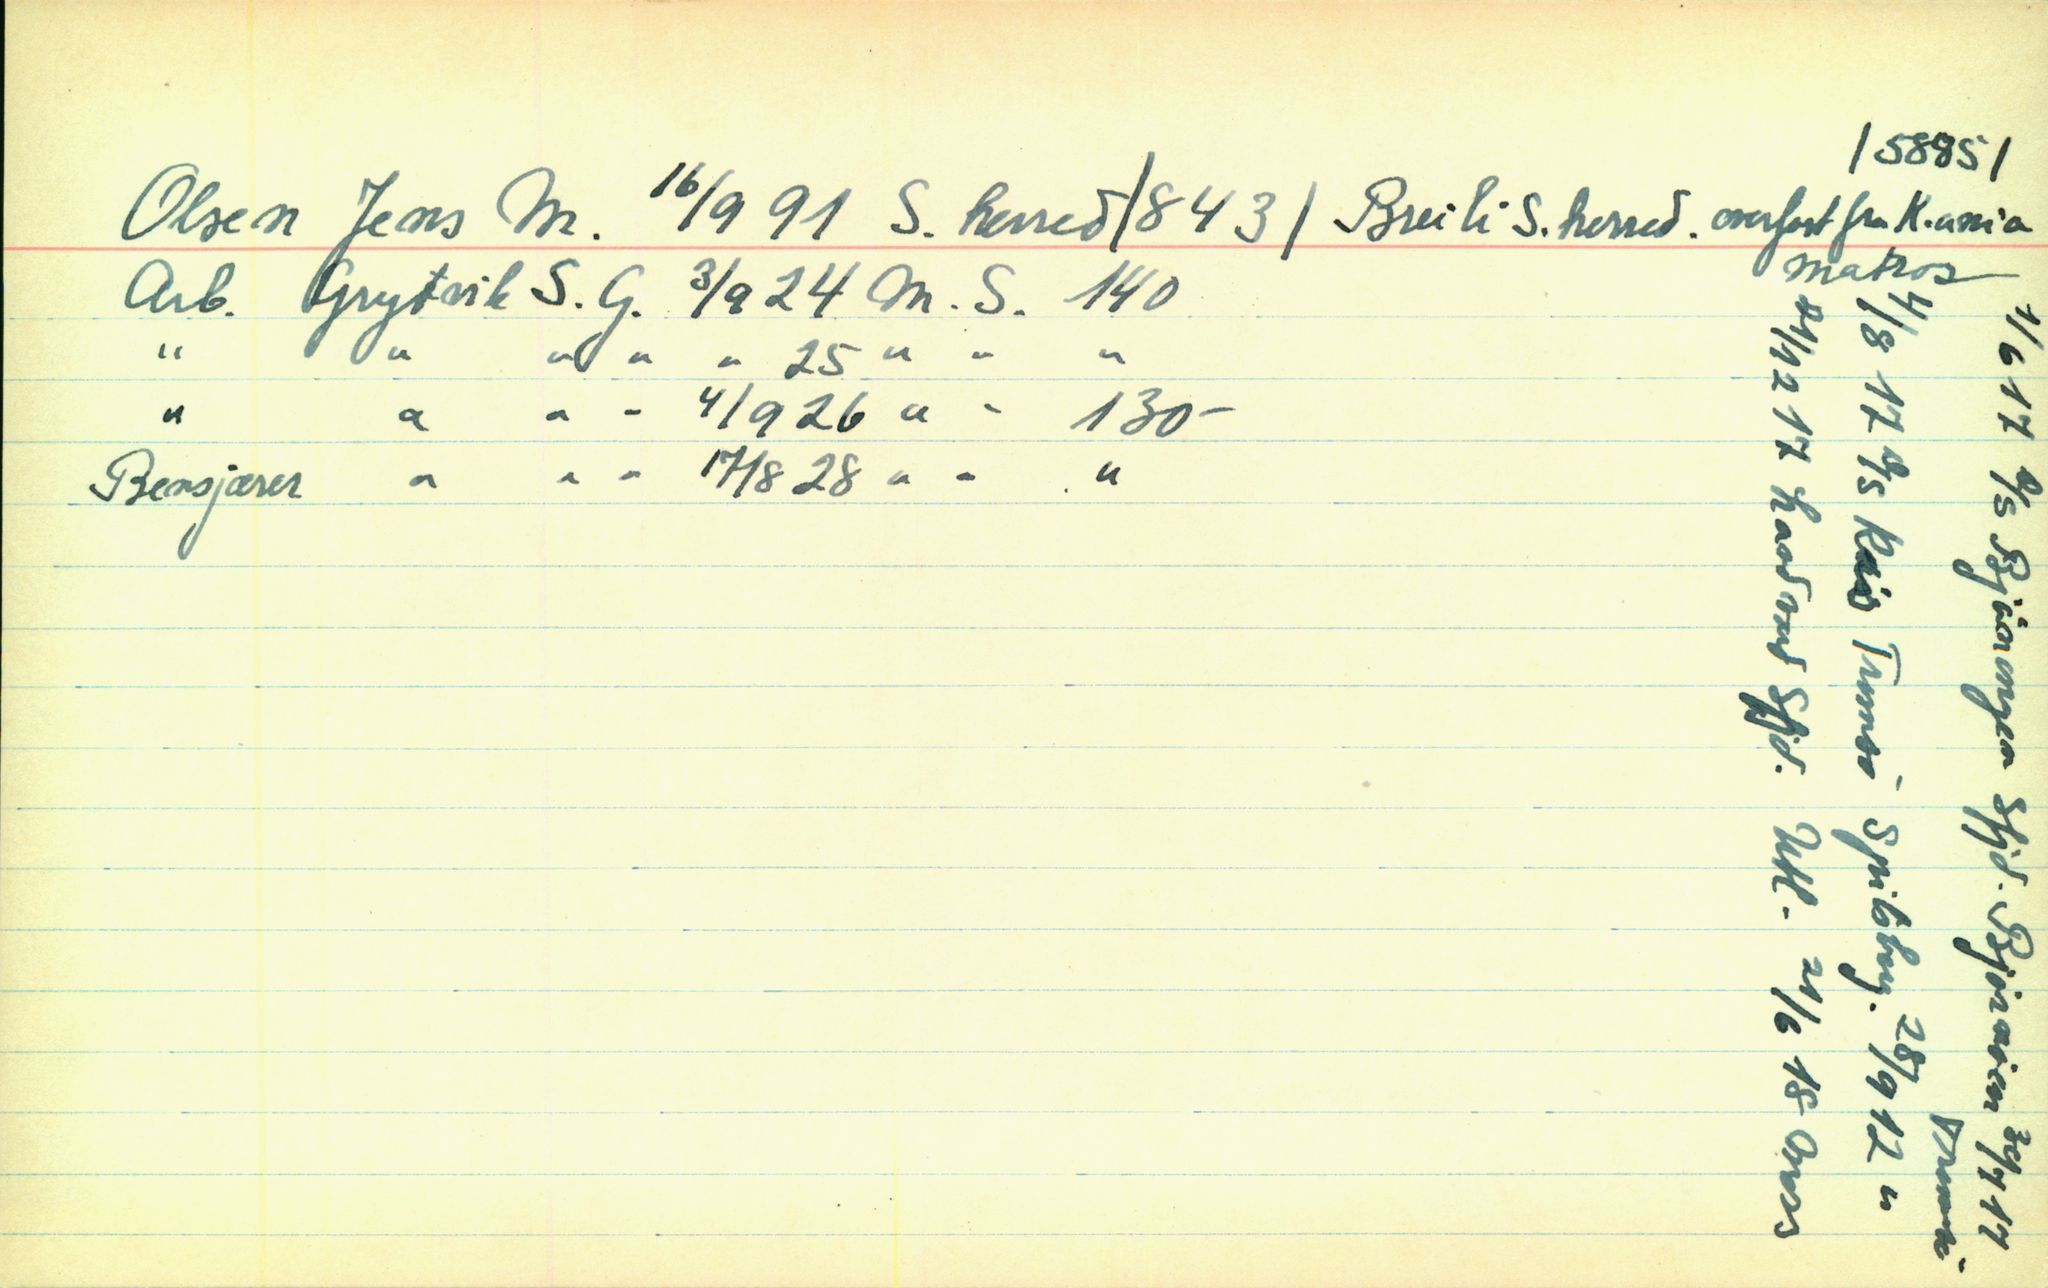 /5885/
Olsen Jens M. 16/9 91 S. herred /843/ Breili S. herred. overført fra K.ania
matros
Arb. Grytvik S. G. 3/9 24 M. S. 140
" " " " " 25 " " "
" " " " 4/9 26 " " 130-
Bensjærer " " " 17/8 28 " " "
1/6 17 D/S Sfjd. 30/7 17
Tromsø
4/8 17 D/S Tromsø - Spitsbg. 28/9 17 "
21/12 17 Sfjd. Utl. 21/6 18